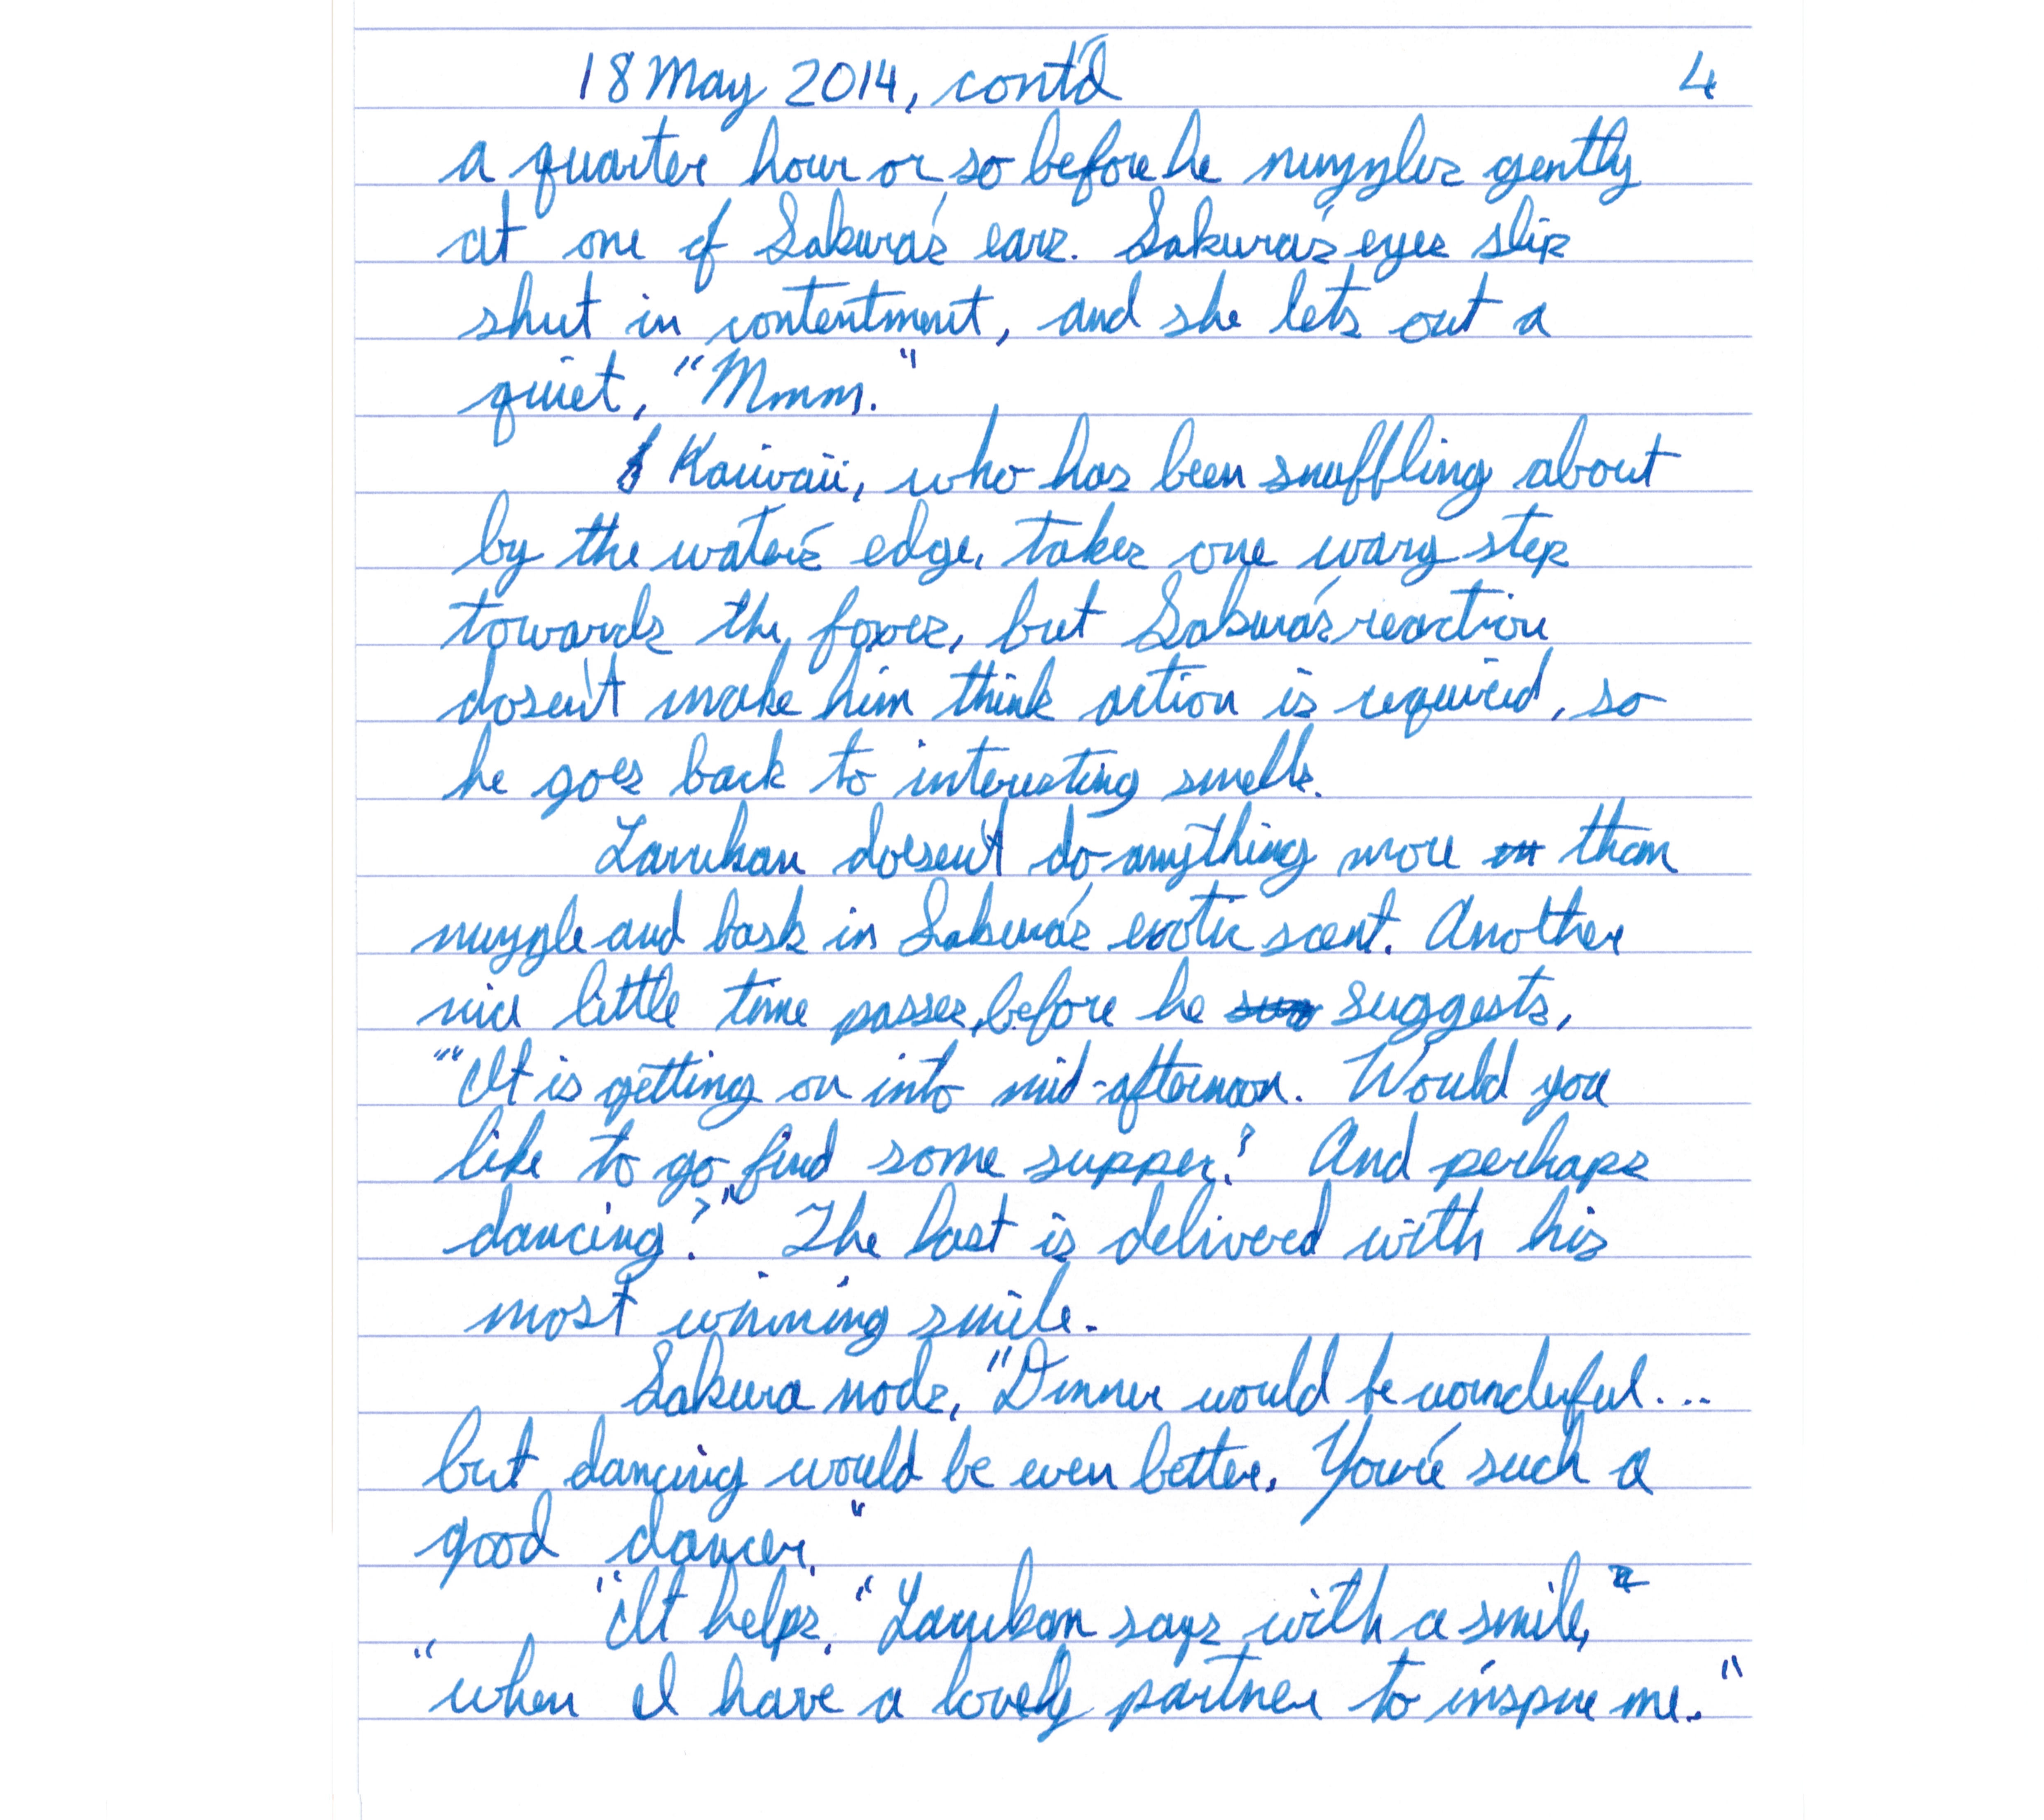 18 May 2014, cont'd 4
a quarter hour or so before he nuzzles gently
at one of Sakura's ears. Sakura's eyes slip
shut in contentment, and she lets out a
quiet, "Mmm."
Kaiwaii, who has been snuffling about
by the water's edge, takes one wary step
towards the foxes, but Sakura's reaction
doesn't make him think action is required, so
he goes back to interesting smells.
Larukan doesn't do anything more than
nuzzle and bask in Sakura's exotic scent. Another
nice little time passes, before he suggests,
"It is getting on into mid-afternoon. Would you
like to go find some supper? And perhaps
dancing?" The last is delivered with his
most winning smile.
Sakura nods, "Dinner would be wonderful...
but dancing would be even better. You're such a
good dancer."
"It helps," Larukan says with a smile,
"when I have a lovely partner to inspire me."